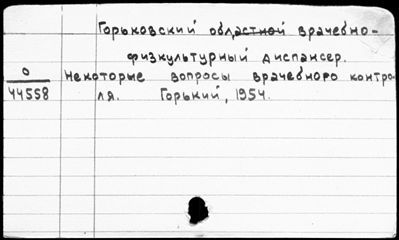 Горьковский областной врачебно-
физкультурный диспансер.
О
44558
Некоторые вопросы врачебного контро-
ля. Горький, 1954.